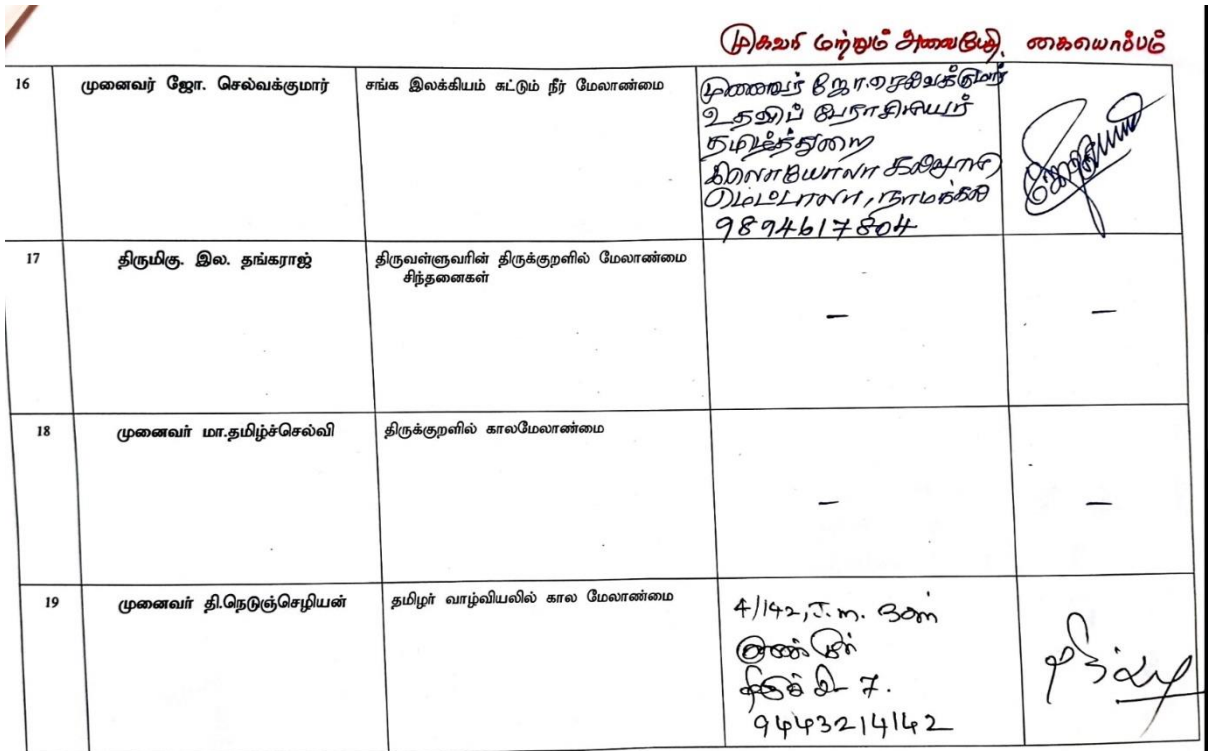 முகவரி மற்றும் அலைபேசி. கையொப்பம்
16 முனைவர் ஜோ. செல்வக்குமார் சங்க இலக்கியம் சுட்டும் நீர் மேலாண்மை
முனைவர் ஜோ.செல்வக்குமார்
உதவிப் பேராசிரியர்
தமிழ்த்துறை
கல்லூரி
மெட்டாலா, நாமக்கல்
9894617804
17 திருமிகு. இல. தங்கராஜ் திருவள்ளுவரின் திருக்குறளில் மேலாண்மை
சிந்தனைகள்
– –
18 முனைவர் மா.தமிழ்ச்செல்வி திருக்குறளில் காலமேலாண்மை
– –
19 முனைவர் தி.நெடுஞ்செழியன் தமிழர் வாழ்வியலில் கால மேலாண்மை
4/142, J.m.
7.
9443214142